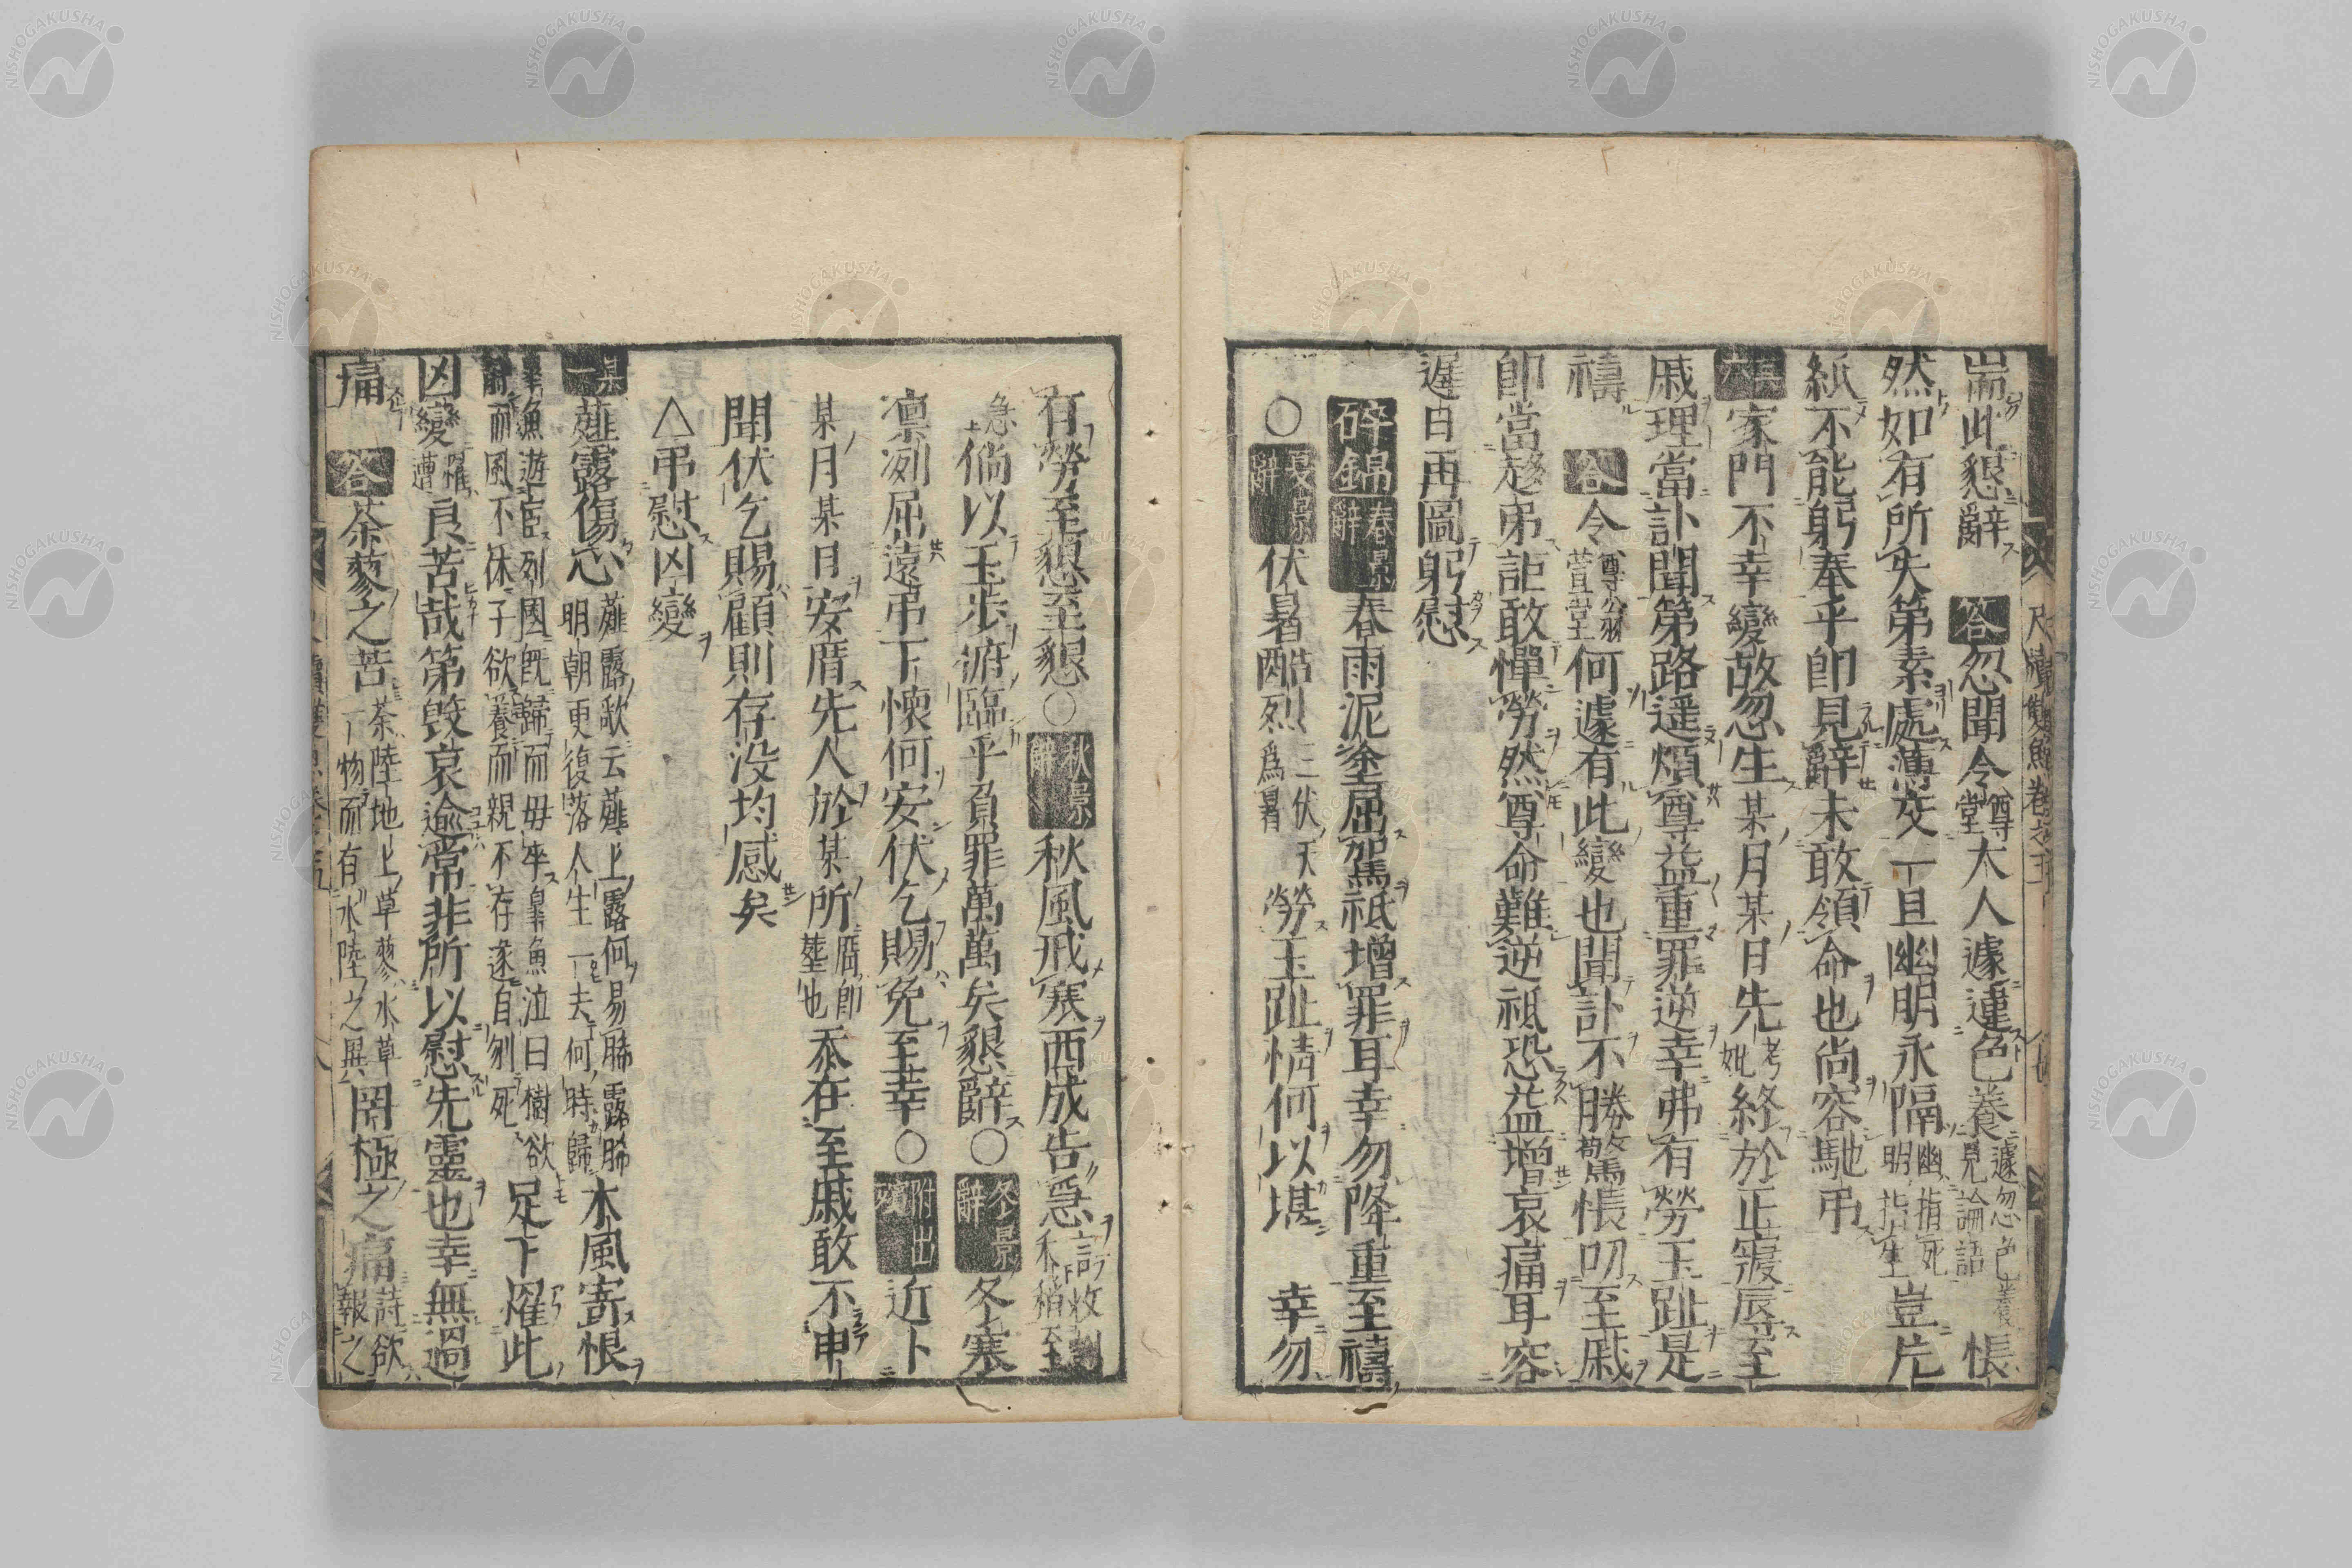 耑此懇辭 答 忽聞令尊堂大人遽違色養遽忽色養見論語悵
然如有所失第素處薄交一旦幽明永隔幽指死明指生豈片
紙不能躬奉乎卽見辭未敢領命也尚容馳弔
其六 家門不幸變故忽生某月某日先考妣終於正寢辰至
戚理當訃聞第路遥煩尊益重罪逆幸弗有勞玉趾是
禱 答 令尊公翁萱堂何遽有此變也聞訃不勝驚悵叨至戚
卽當趍弔詎敢憚勞然尊命難逆祗恐益增哀痛耳容
遲日再圖躬慰
碎錦 春景辭 春雨泥塗屈駕祗增罪耳幸勿降重至禱
○ 夏景辭 伏暑酷烈三伏天爲暑勞玉趾情何以堪 幸勿
尺牘雙魚卷之五
有勞至懇至懇○ 秋景辭 秋風戒寒西成告急
急倘以玉步俯臨乎負罪萬萬矣懇辭○ 冬景辭 冬寒
凛冽屈遠弔下懷何安伏乞賜免至幸○ 附出殯 近卜
某月某日安厝先人於某所厝卽塟也忝在至戚敢不申
聞伏乞賜顧則存没均感矣
△弔慰凶變
其一 薤露傷心薤露歌云薤上露何易晞露晞明朝更復落人生一去何時歸木風寄恨
皐魚遊宦列國既歸而母卒皐魚泣曰樹欲靜而風不休子欲養而親不存遂自刎死足下罹此
凶變罹遭良苦哉第毀哀逾常非所以慰先靈也幸無過
痛 答 荼蓼之苦荼陸地上草蓼水草一物而有水陸之異罔極之痛詩欲報之